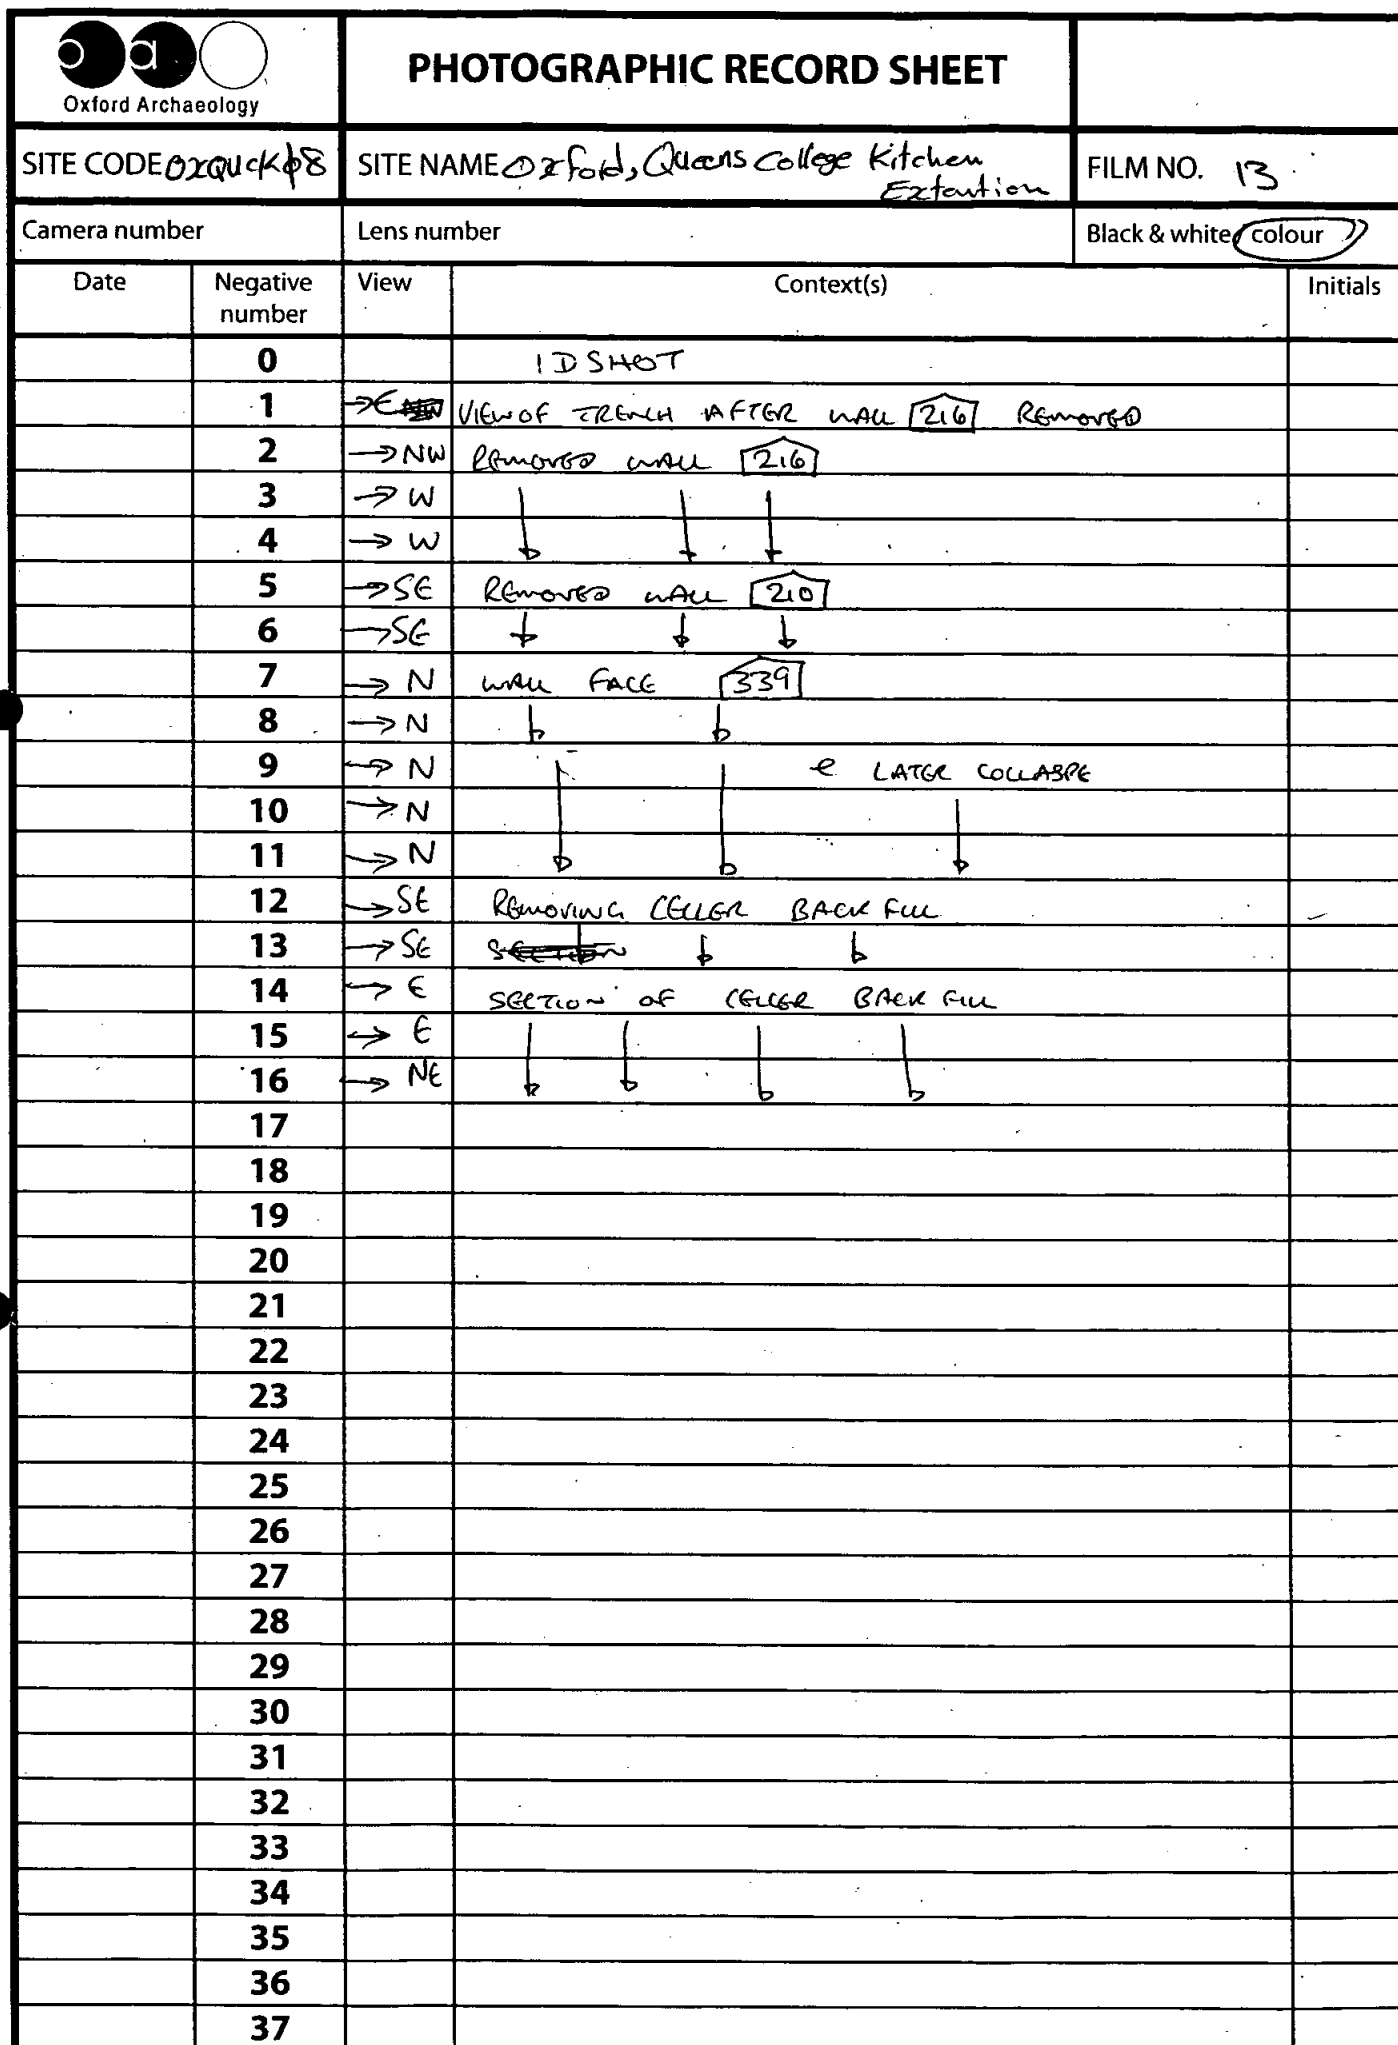 oao
Oxford Archaeology
PHOTOGRAPHIC RECORD SHEET
SITE CODE OXQUCKØ8
SITE NAME Oxford, Queens College Kitchen
Extention
FILM NO. 13
Camera number
Lens number
Black & white / colour
Date
Negative number
View
Context(s)
Initials
0 ID SHOT
1 → E VIEW OF TRENCH AFTER WALL 216 REMOVED
2 → NW REMOVED WALL 216
3 → W ↓ ↓ ↓
4 → W
5 → SE REMOVED WALL 210
6 → SE ↓ ↓ ↓
7 → N WALL FACE 339
8 → N ↓ ↓
9 → N ↓ ↓ e LATER COLLASPE
10 → N ↓
11 → N
12 → SE REMOVING CELLER BACK FILL
13 → SE SECTION ↓ ↓ ↓
14 → E SECTION OF CELLER BACK FILL
15 → E ↓ ↓ ↓ ↓
16 → NE
17
18
19
20
21
22
23
24
25
26
27
28
29
30
31
32
33
34
35
36
37